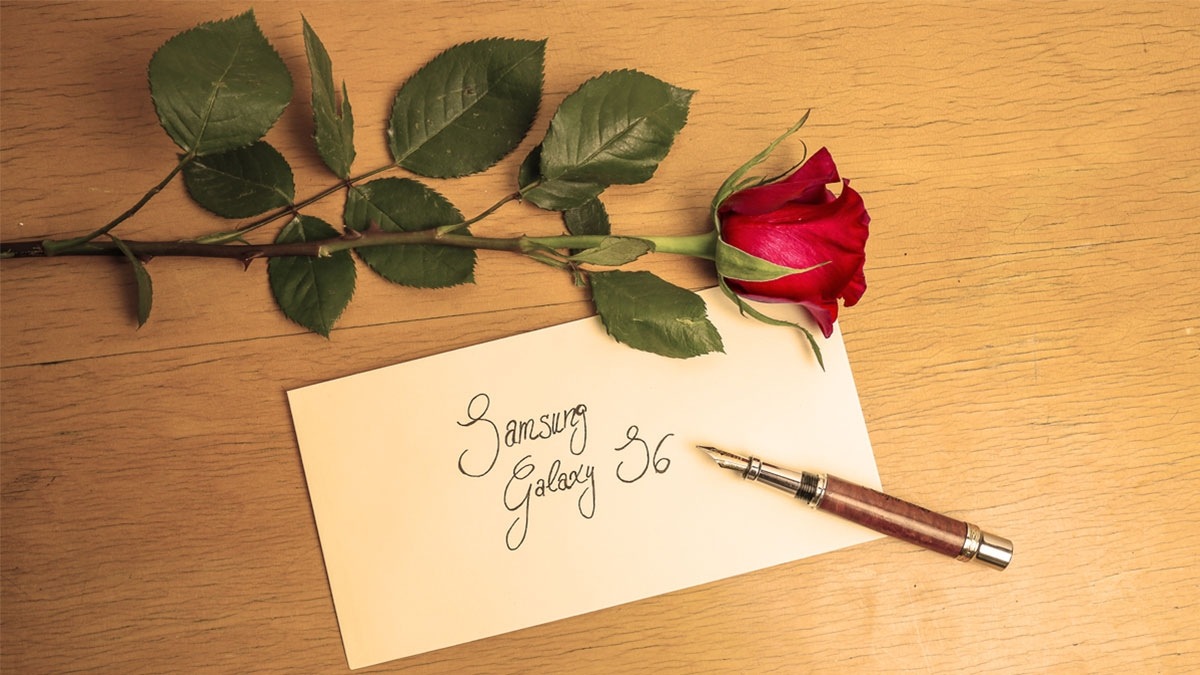 Samsung
Galaxy S6